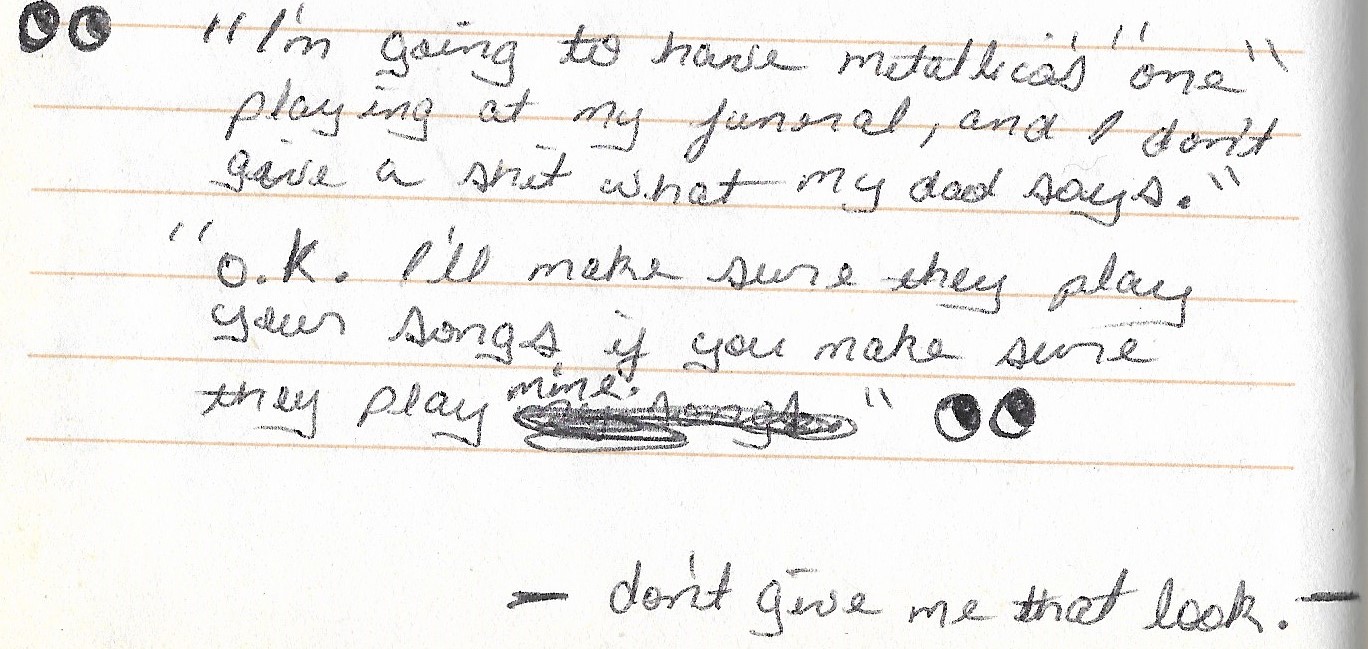 "I'm going to have metallica's "one"
playing at my funeral, and I don't
give a shit what my dad says."
"O.K. I'll make sure they play
your songs if you make sure
they play mine."
- don't give me that look. -